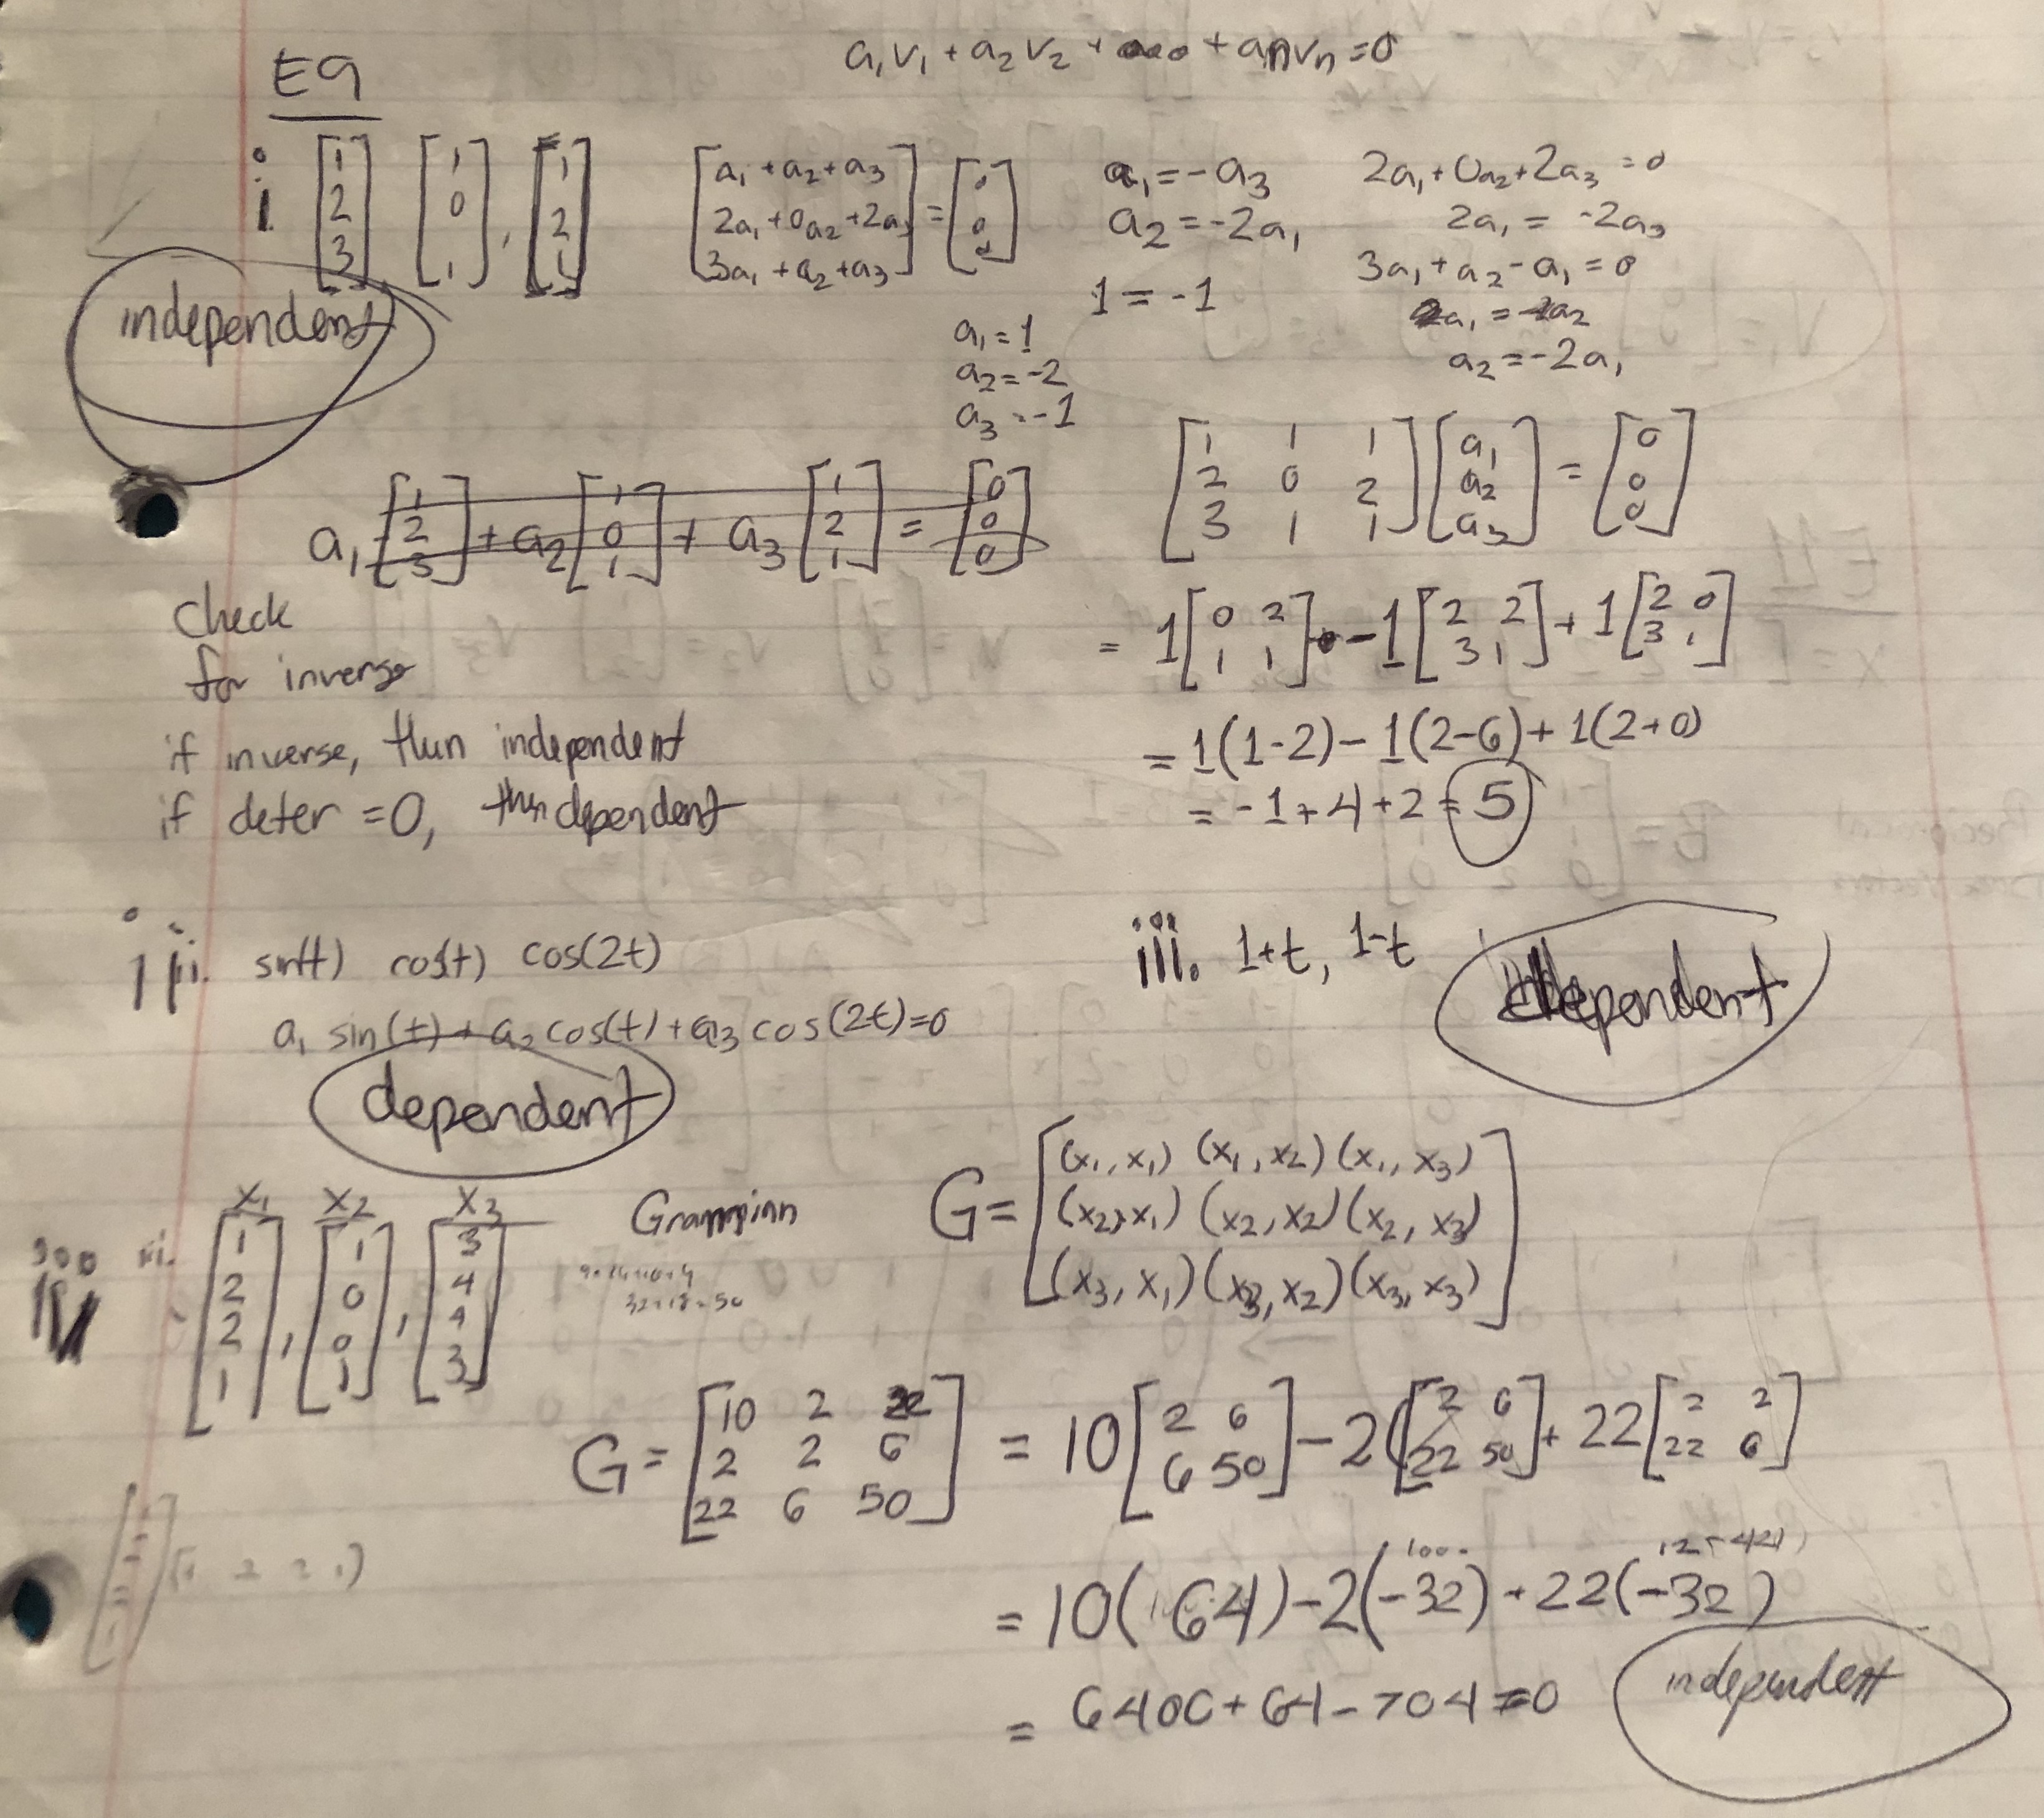 E9
a₁v₁ + a₂v₂ + ... + anvn = 0
i. [1 2 3] [1 0 1], [1 2 1]
[a₁ + a₂ + a₃
2a₁ + 0a₂ + 2a₃
3a₁ + a₂ + a₃] = [0 0 0]
a₁ = -a₃
a₂ = -2a₁
1 = -1
2a₁ + 0a₂ + 2a₃ = 0
2a₁ = -2a₃
3a₁ + a₂ - a₁ = 0
2a₁ = -1a₂
a₂ = -2a₁
independent
a₁ = 1
a₂ = -2
a₃ = -1
a₁[1 2 3] + a₂[1 0 1] + a₃[1 2 1] = [0 0 0]
[1 1 1
2 0 2
3 1 1] [a₁ a₂ a₃] = [0 0 0]
= 1[0 2
1 1] - 1[2 2
3 1] + 1[2 0
3 1]
= 1(1-2) - 1(2-6) + 1(2+0)
= -1 + 4 + 2 = 5
Check
for inverse
if inverse, then independent
if deter = 0, then dependent
ii. sin(t) cos(t) cos(2t)
a₁ sin(t) + a₂ cos(t) + a₃ cos(2t) = 0
dependent
iii. 1+t, 1-t
dependent
iv
x₁ x₂ x₃
[1 2 2 1], [1 0 0 1], [3 4 4 3]
Grammian
32+18=50
G = [(x₁, x₁) (x₁, x₂) (x₁, x₃)
(x₂, x₁) (x₂, x₂) (x₂, x₃)
(x₃, x₁) (x₃, x₂) (x₃, x₃)]
G = [10 2 22
2 2 6
22 6 50] = 10[2 6
6 50] - 2[2 6
22 50] + 22[2 2
22 6]
[1 2 2 1]
= 10(64) - 2(-32) + 22(-32)
= 6400 + 64 - 704 ≠ 0
independent